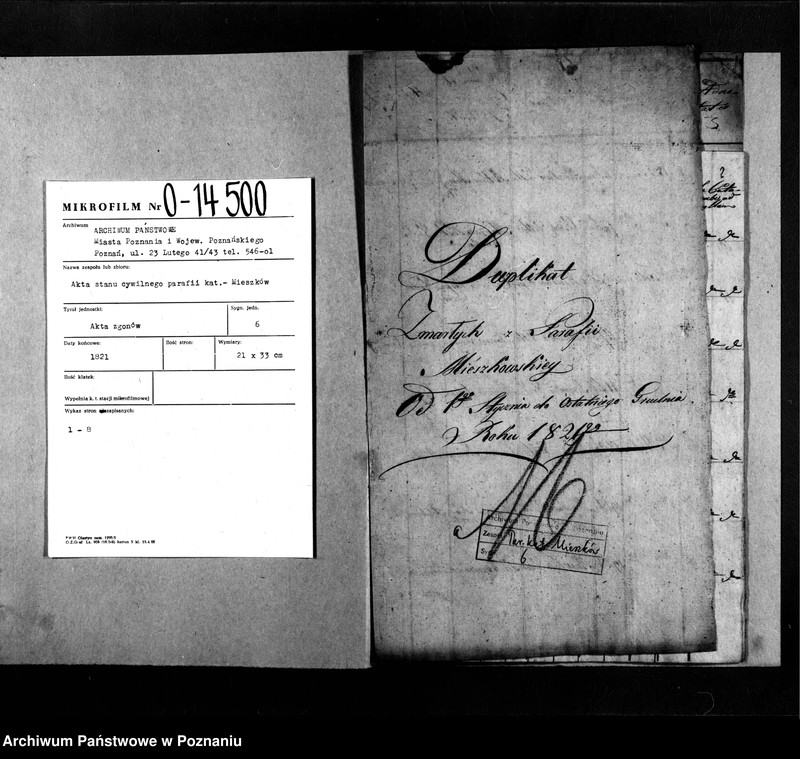 MIKROFILM Nr O-14 500
Archiwum
ARCHIWUM PAŃSTWOWE
Miasta Poznania i Wojew. Poznańskiego
Poznań, ul. 23 Lutego 41/43 tel. 546-01
Nazwa zespołu lub zbioru:
Akta stanu cywilnego parafii kat.- Mieszków
Tytuł jednostki:
Akta zgonów
Sygn. jedn.
6
Daty końcowe:
1821
Ilość stron:
Wymiary:
21 x 33 cm
Ilość klatek:
Wypełnia k. t. stacji mikrofilmowej
Wykaz stron niezapisanych:
1 - 8
Duplikat
Zmarłych z Parafii
Mieszkowskiey
Od 1go Stycznia do Ostatniego Grudnia
Roku
Zesp
Par. kat. Mieszków
6
Archiwum Państwowe w Poznaniu